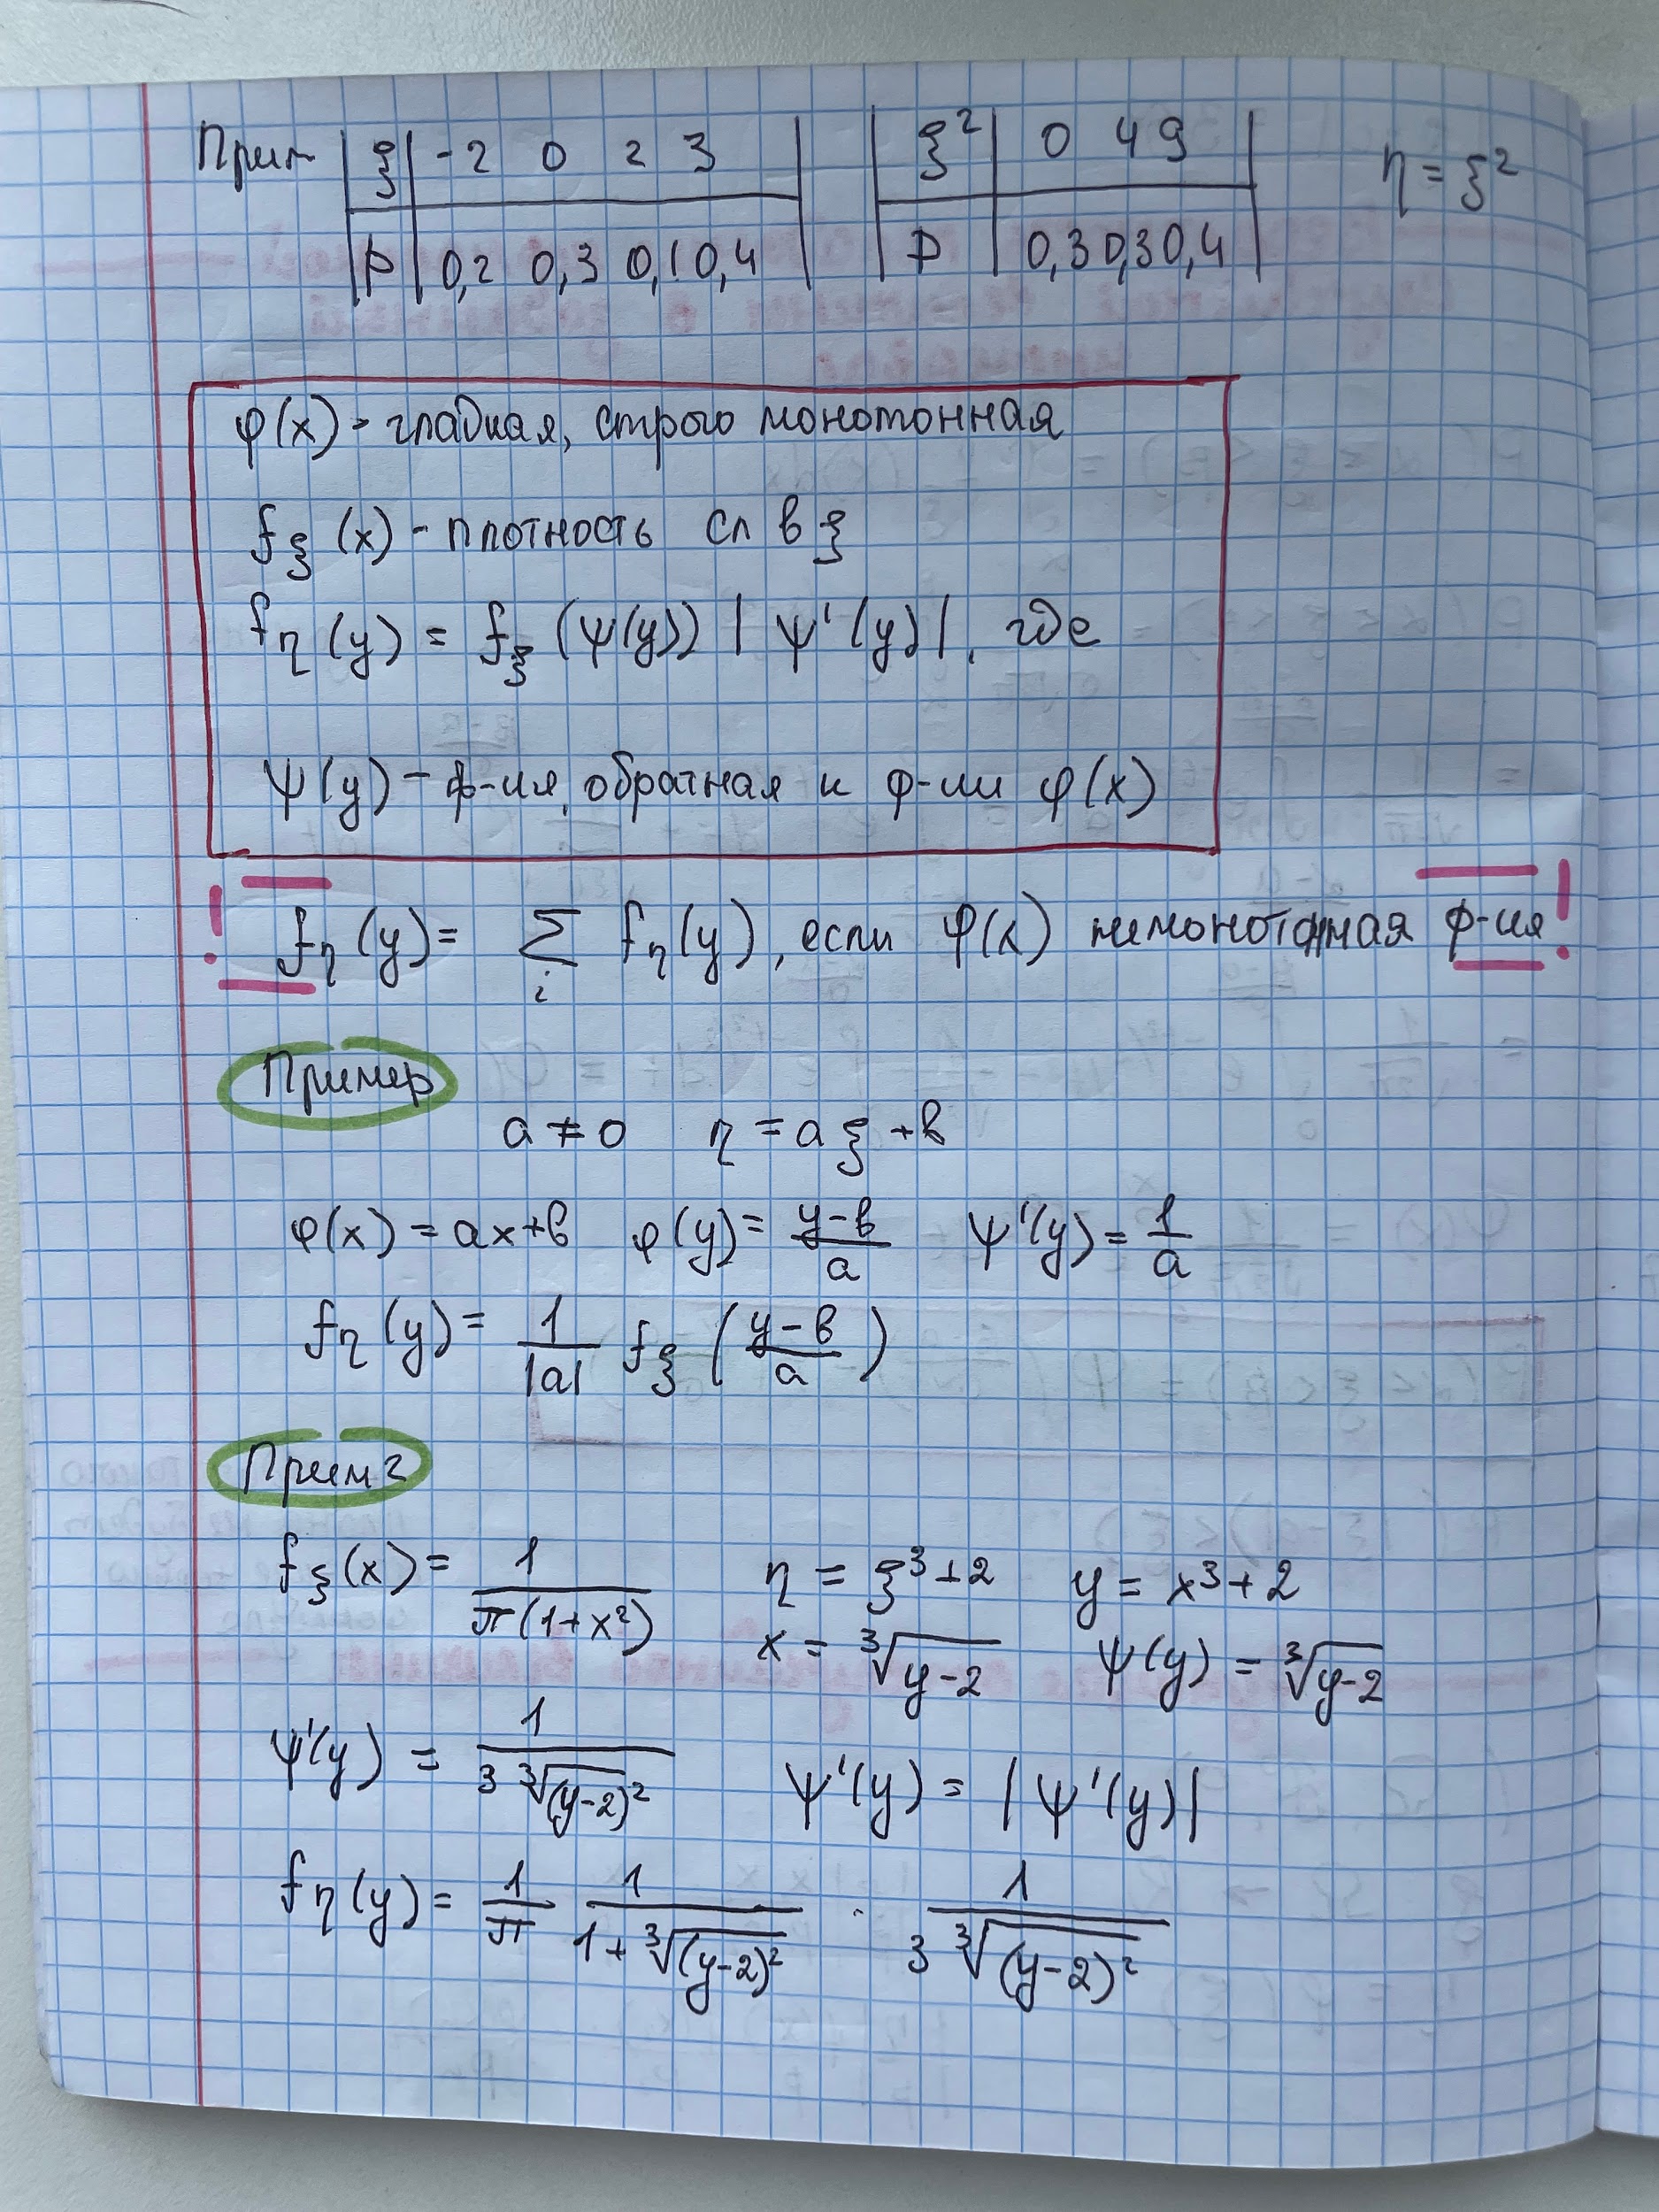 Прим | ξ | -2 0 2 3 | | ξ² | 0 4 9 | η = ξ²
| P | 0,2 0,3 0,1 0,4 | | P | 0,3 0,3 0,4 |
φ(x) - гладкая, строго монотонная
f_ξ (x) - плотность сл в ξ
f_η (y) = f_ξ (ψ(y)) | ψ'(y)|, где
ψ(y) - ф-ия, обратная к ф-ии φ(x)
! f_η (y) = Σ_i f_η (y), если φ(x) немонотонная ф-ия !
Пример
a ≠ 0 η = a ξ + в
φ(x) = ax+в φ(y) = (y-в)/a ψ'(y) = 1/a
f_η (y) = 1/|a| f_ξ ((y-в)/a)
Прим 2
f_ξ (x) = 1/(π(1+x²)) η = ξ³+2 y = x³+2
x = ∛(y-2) ψ(y) = ∛(y-2)
ψ'(y) = 1/(3 ∛(y-2)²) ψ'(y) = | ψ'(y)|
f_η (y) = 1/π 1/(1+∛(y-2)²) · 1/(3 ∛(y-2)²)